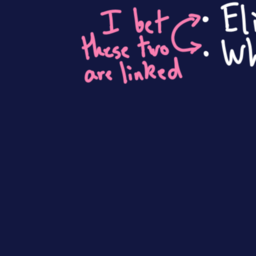 I bet
these two
are linked